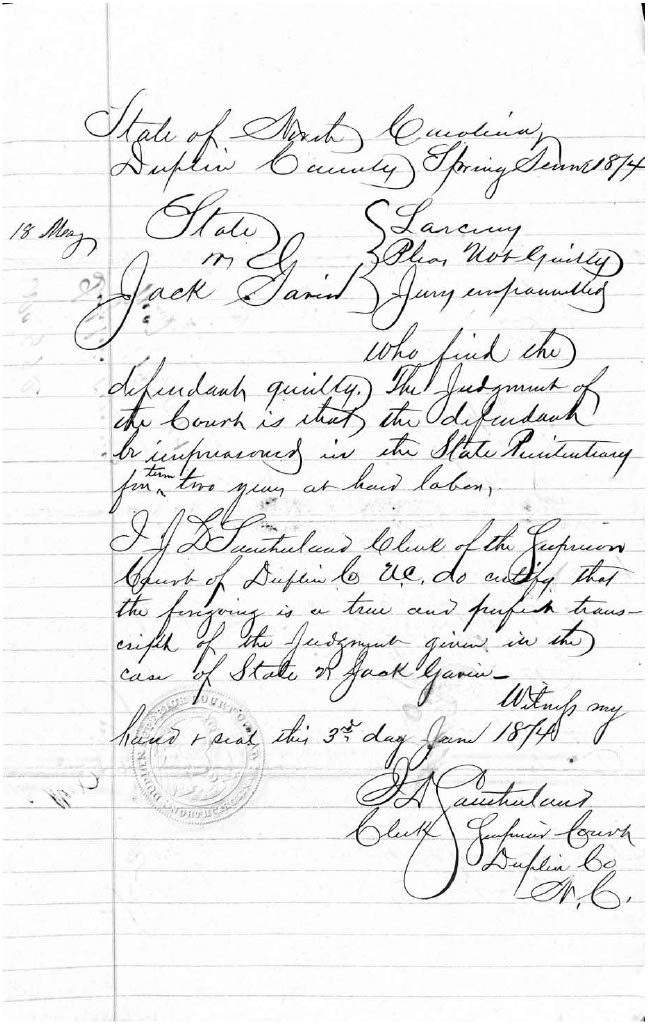 State of North Carolina,
Duplin County Spring Term 1874
18 May
State
vs
Jack Gavin
Larceny
Plea, Not Guilty
Jury empannelled
who find the
defendant guilty. The Judgment of
the Court is that the defendant
be impreasoned in the State Penitentiary
for term two years at hard labor,
I J D Southerland Clerk of the Superior
Court of Duplin Co N.C. do certify that
the foregoing is a true and perfect trans-
cript of the Judgment given in the
case of State vs Jack Gavin -
Witness my
hand & seal this 3rd day June 1874
J D Southerland
Clerk Superior Court
Duplin Co
N. C.